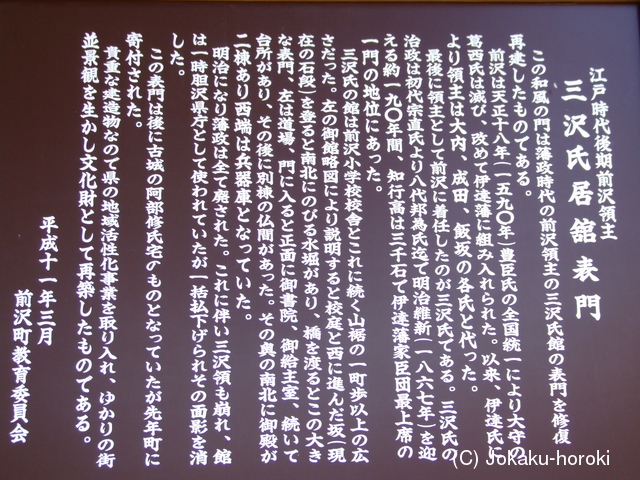 江戸時代後期前沢領主
三沢氏居舘表門
この和風の門は藩政時代の前沢領主の三沢氏館の表門を修復
再建したものである。
前沢は天正十八年(一五九〇年)豊臣氏の全国統一により大守の
葛西氏は滅び、改めて伊達藩に組み入れられた。以来、伊達氏に
より領主は大内、成田、飯坂の各氏と代った。
最後に領主として前沢に着任したのが三沢氏である。三沢氏の
治政は初代宗直氏より八代邦為氏迄で明治維新(一八六七年)を迎
える約一九〇年間、知行高は三千石で伊達藩家臣団最上席の
一門の地位にあった。
三沢氏の館は前沢小学校校舎とこれに続く山裾の一町歩以上の広
さだった。左の御館略図により説明すると校庭と西に進んだ坂(現
在の石段)を登ると南北にのびる水堀があり、橋を渡るとこの大き
な表門、左は道場、門に入ると正面に御書院、御給主室、続いて
台所があり、その後に別棟の仏間があった。その奥の南北に御殿が
二棟あり西端は兵器庫となっていた。
明治になり藩政は全て廃された。これに伴い三沢領も崩れ、館
は一時胆沢県庁として使われていたが一括払下げられその面影を消
した。
この表門は後に古城の阿部修氏宅のものとなっていたが先年町に
寄付された。
貴重な建造物なので県の地域活性化事業を取り入れ、ゆかりの街
並景観を生かし文化財として再築したものである。
平成十一年三月
前沢町教育委員会
(C) Jokaku-horoki